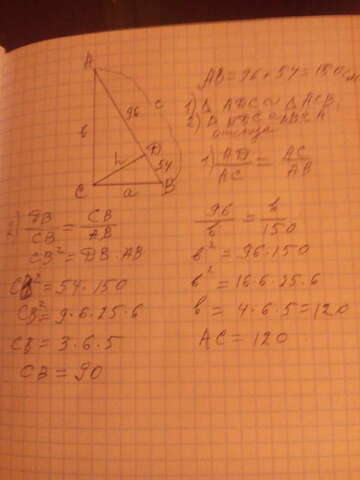 A
c
96
в
D
h
54
C
a
B
AB = 96 + 54 = 150 см
1) Δ ADC ∾ Δ ACB,
2)
отсюда
1) AD/AC = AC/AB
96/в = в/150
в² = 96·150
в² = 16·6·25·6
в = 4·6·5 = 120
AC = 120
2) DB/CB = CB/AB
CB² = DB·AB
CB² = 54·150
CB² = 9·6·25·6
CB = 3·6·5
CB = 90